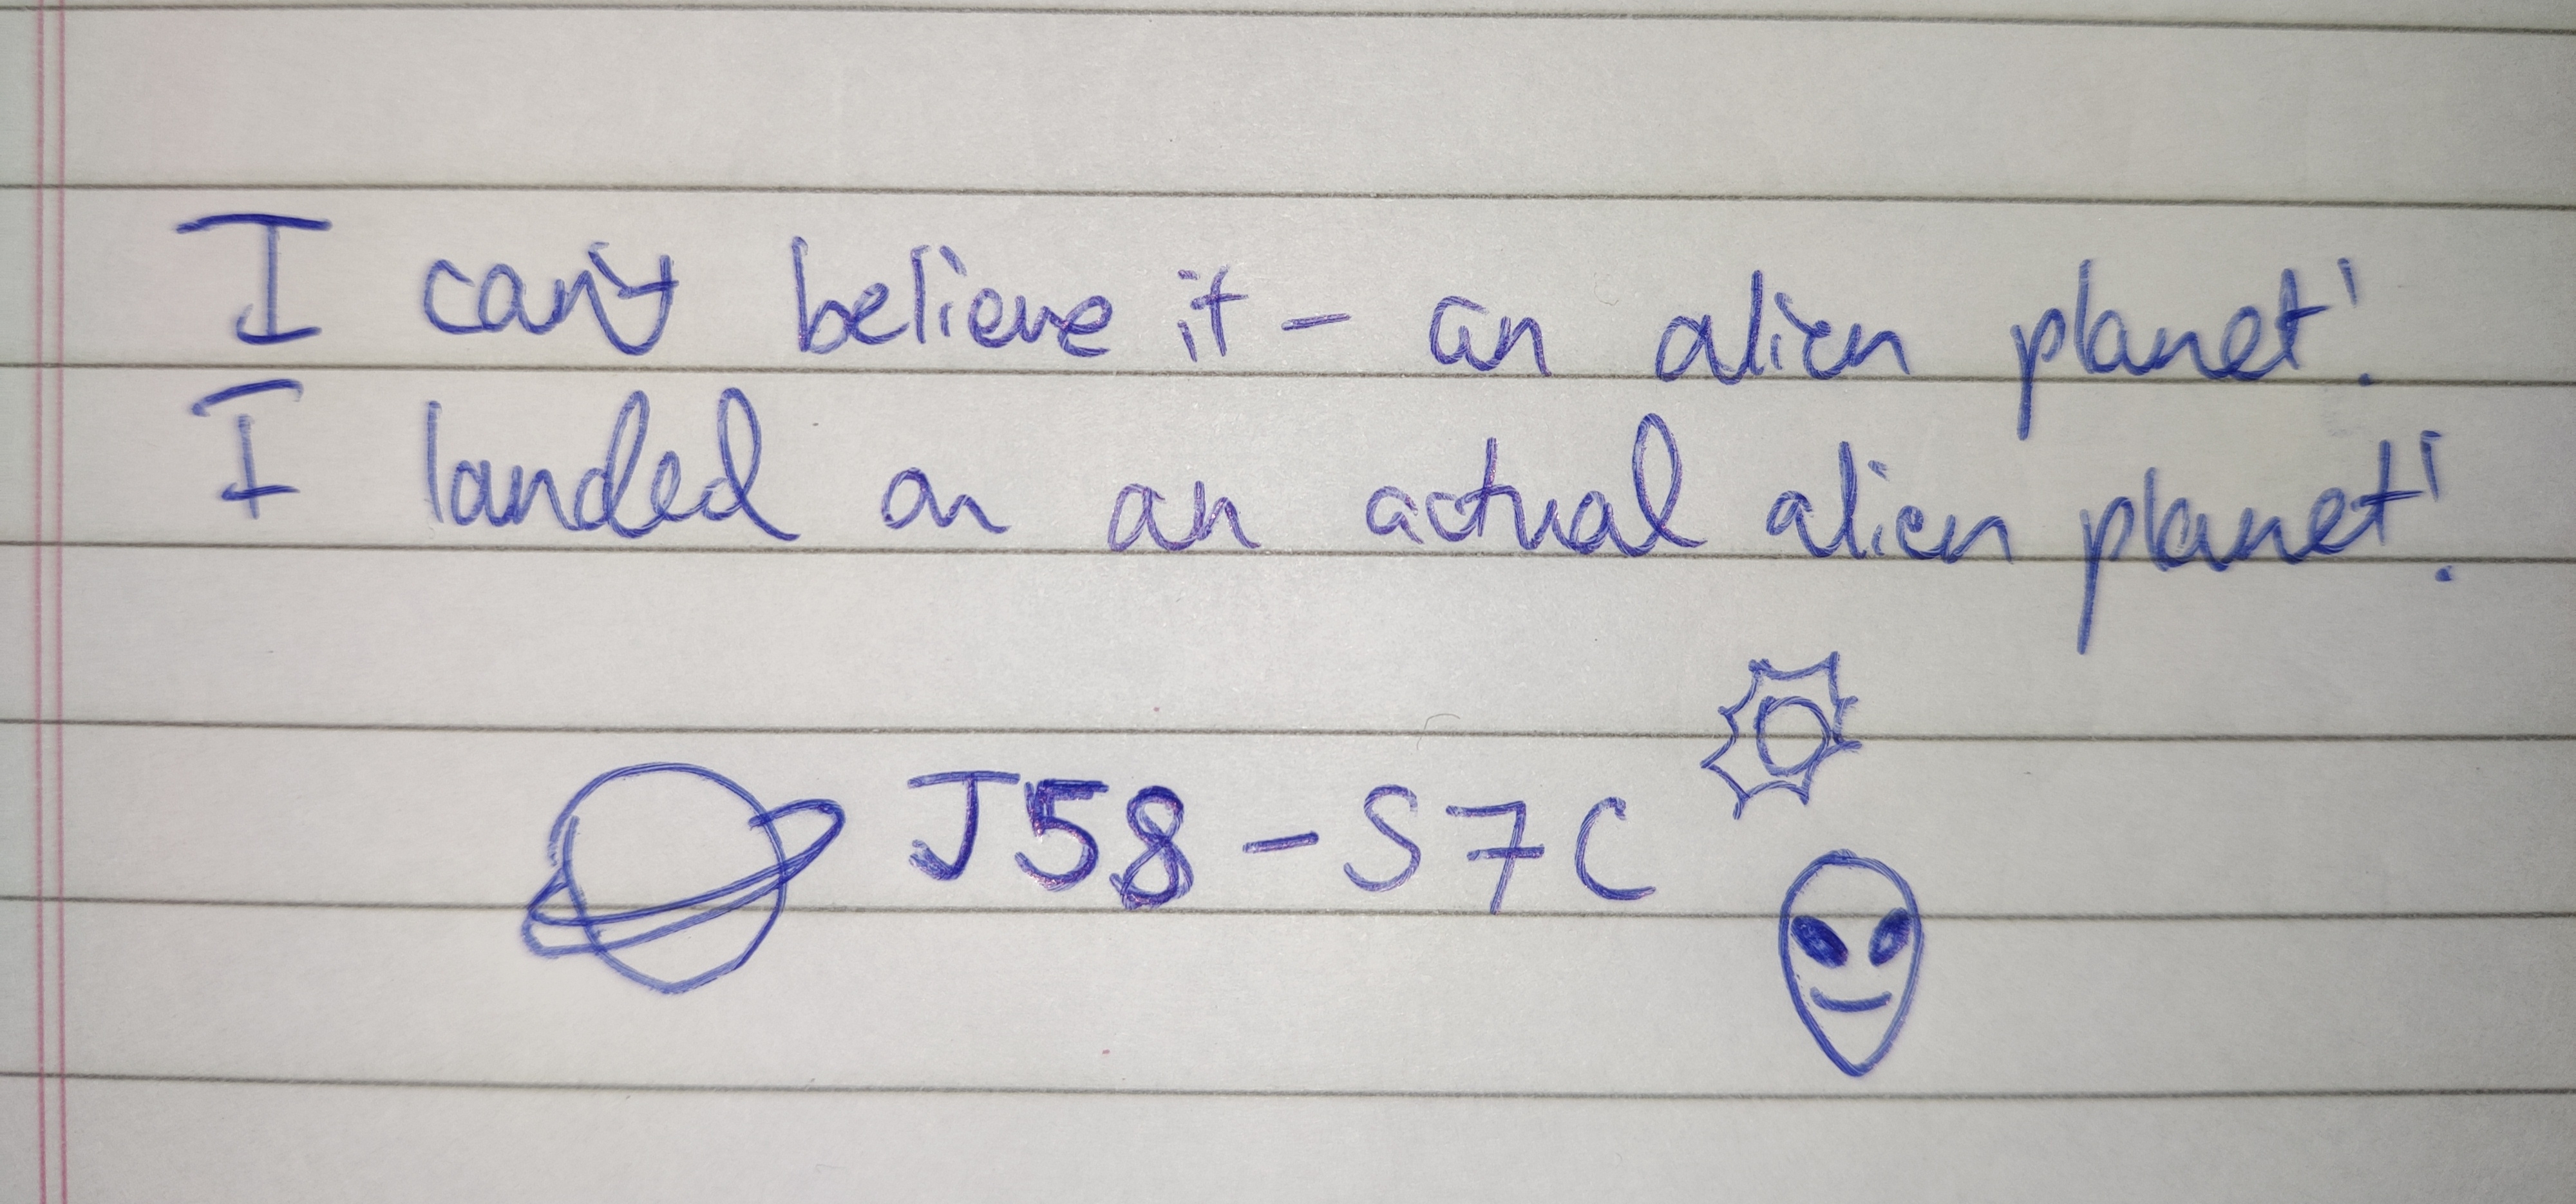 I can't believe it - an alien planet!
I landed on an actual alien planet!
J58-S7C